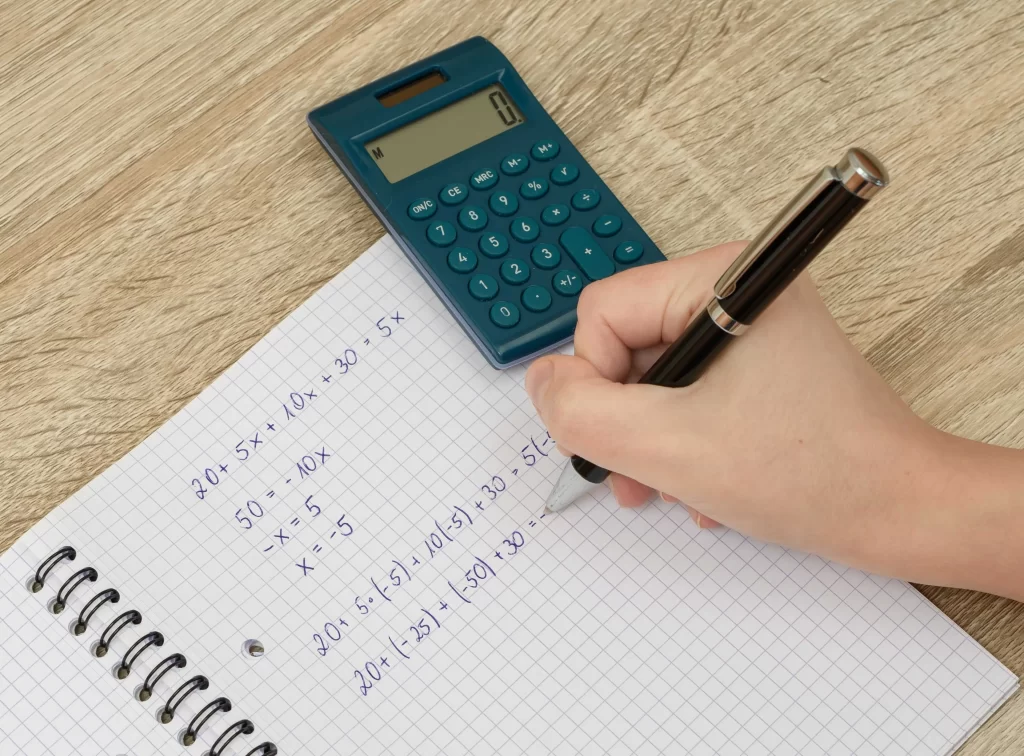 0.
M
ON/C CE MRC M- M+
7 8 9 % √
4 5 6 × ÷
1 2 3 + −
0 . +/- =
20+ 5x + 10x + 30 = 5x
50 = - 10x
-x = 5
x = -5
20+ 5•(-5) + 10(-5) + 30 = 5(-5
20+ (-25) + (-50) + 30 = -